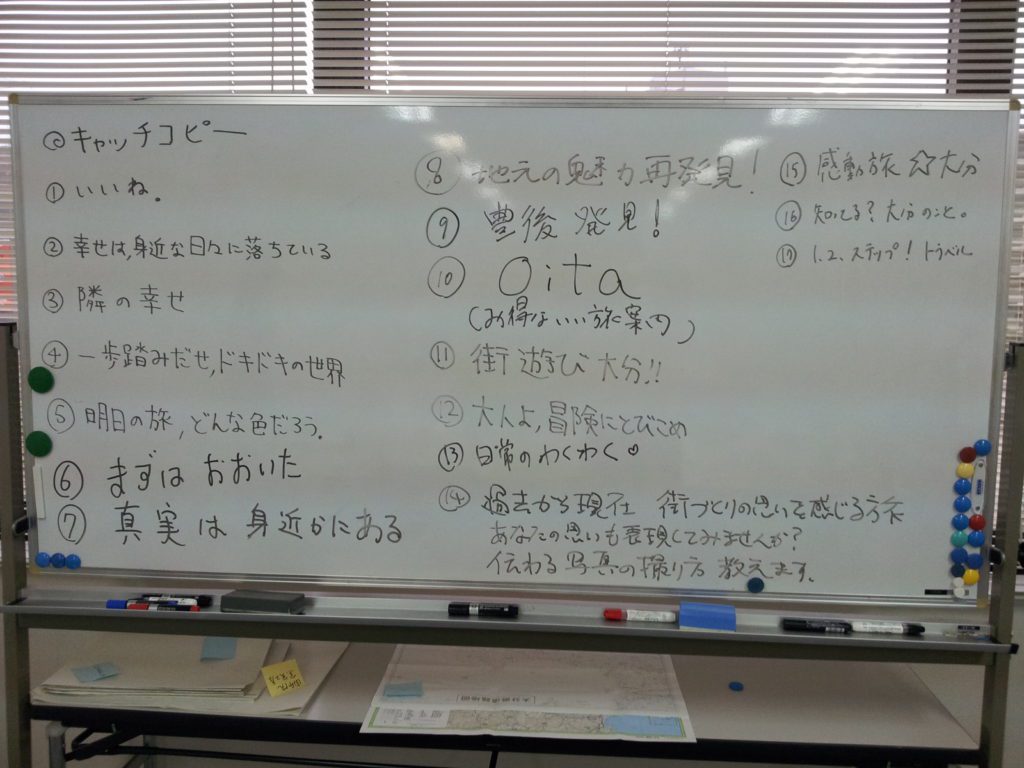 ◎キャッチコピー
① いいね。
② 幸せは,身近な日々に落ちている
③ 隣の幸せ
④ 一歩踏みだせ,ドキドキの世界
⑤ 明日の旅,どんな色だろう.
⑥ まずは おおいた
⑦ 真実は身近かにある
⑧ 地元の魅力再発見!
⑨ 豊後発見!
⑩ Oita
(お得ないい旅案内)
⑪ 街遊び大分!!
⑫ 大人よ,冒険にとびこめ
⑬ 日常のわくわく♡
⑭ 過去から現在 街づくりの思いを感じる旅
あなたの思いも表現してみませんか?
伝わる写真の撮り方教えます.
⑮ 感動旅☆大分
⑯ 知ってる?大分のこと。
⑰ 1.2.ステップ!トラベル